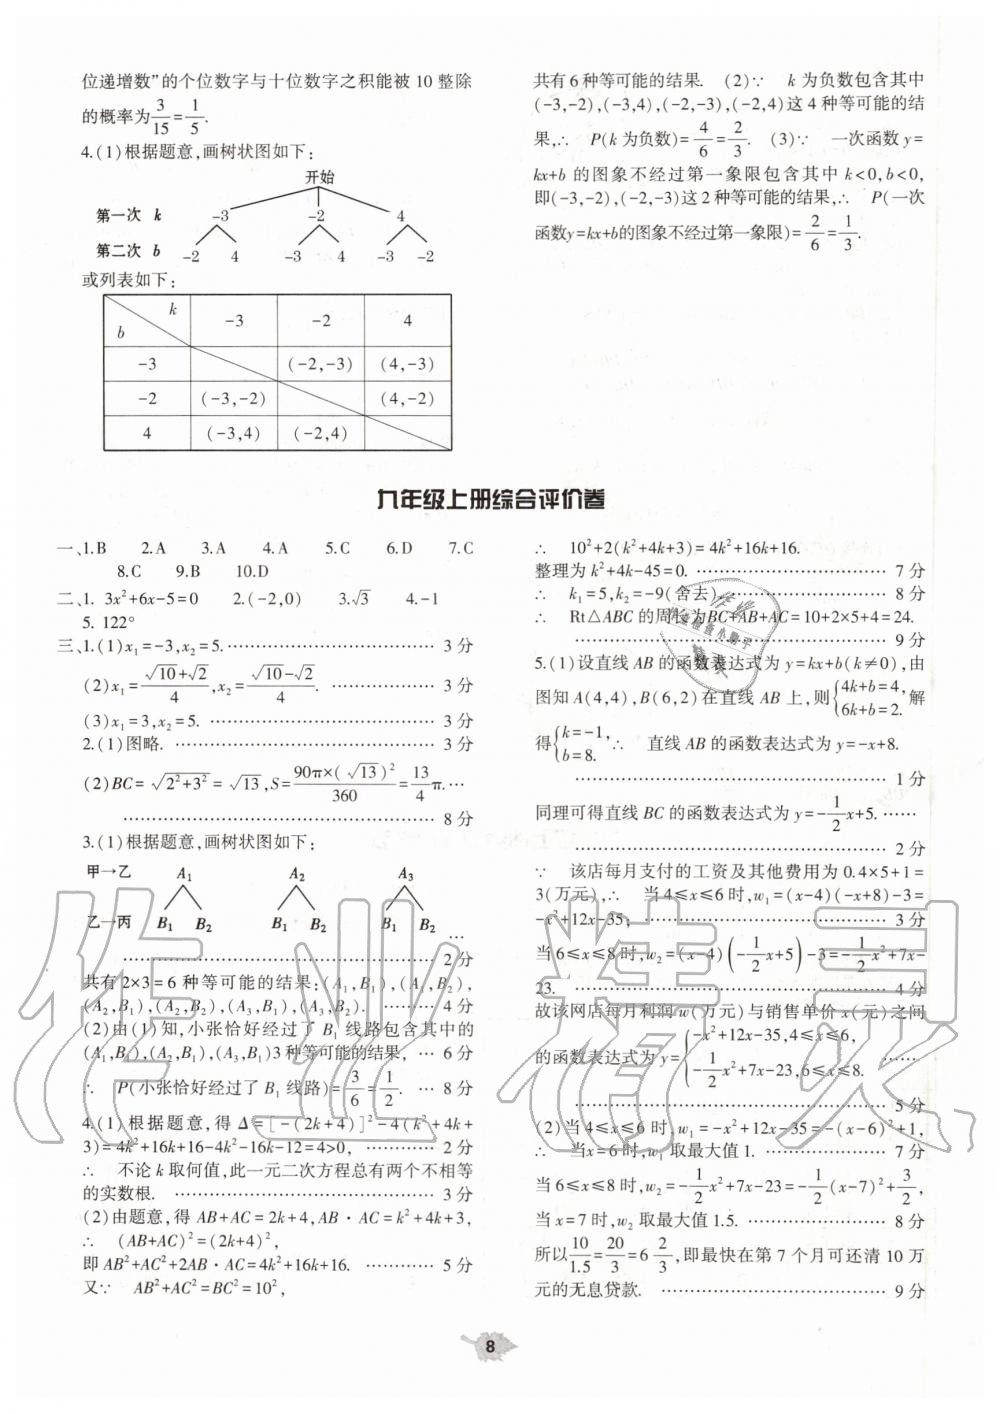 位递增数”的个位数字与十位数字之积能被 10 整除
的概率为3/15=1/5.
4.(1)根据题意,画树状图如下:
开始
第一次 k -3 -2 4
第二次 b -2 4 -3 4 -3 -2
或列表如下:
k
b
-3 -2 4
-3 (-2,-3) (4,-3)
-2 (-3,-2) (4,-2)
4 (-3,4) (-2,4)
共有 6 种等可能的结果. (2)∵ k 为负数包含其中
(-3,-2),(-3,4),(-2,-3),(-2,4)这 4 种等可能的结
果,∴ P(k 为负数)=4/6=2/3. (3)∵ 一次函数 y=
kx+b 的图象不经过第一象限包含其中 k<0,b<0,
即(-3,-2),(-2,-3)这 2 种等可能的结果,∴ P(一次
函数y=kx+b的图象不经过第一象限)=2/6=1/3.
九年级上册综合评价卷
一、1.B 2.A 3.A 4.A 5.C 6.D 7.C
8.C 9.B 10.D
二、1. 3x²+6x-5=0 2.(-2,0) 3.√3 4.-1
5. 122°
三、1.(1)x₁=-3,x₂=5. ……………………… 3 分
(2)x₁=(√10+√2)/4,x₂=(√10-√2)/4. ……………… 3 分
(3)x₁=3,x₂=5. ……………………… 3 分
2.(1)图略. ……………………… 3 分
(2)BC=√(2²+3²)=√13,S=90π×(√13)²/360=13/4π.…
……………………… 8 分
3.(1)根据题意,画树状图如下:
甲→乙 A₁ A₂ A₃
乙→丙 B₁ B₂ B₁ B₂ B₁ B₂ …
……………………… 2 分
共有 2×3=6 种等可能的结果:(A₁,B₁),(A₁,B₂),
(A₂,B₁),(A₂,B₂),(A₃,B₁),(A₃,B₂). ……… 4 分
(2)由(1)知,小张恰好经过了 B₁ 线路包含其中的
(A₁,B₁),(A₂,B₁),(A₃,B₁)3 种等可能的结果, … 6 分
∴ P(小张恰好经过了 B₁ 线路)=3/6=1/2. … 8 分
4.(1)根据题意,得 Δ=[-(2k+4)]²-4(k²+4k+
3)=4k²+16k+16-4k²-16k-12=4>0, ……… 2 分
∴ 不论 k 取何值,此一元二次方程总有两个不相等
的实数根. ……………………… 3 分
(2)由题意,得 AB+AC=2k+4,AB·AC=k²+4k+3,
∴ (AB+AC)²=(2k+4)²,
即 AB²+AC²+2AB·AC=4k²+16k+16. ………… 5 分
又∵ AB²+AC²=BC²=10²,
∴ 10²+2(k²+4k+3)=4k²+16k+16.
整理为 k²+4k-45=0. ……………………… 7 分
∴ k₁=5,k₂=-9(舍去). ……………………… 8 分
∴ Rt△ABC 的周长为BC+AB+AC=10+2×5+4=24.
……………………… 9 分
5.(1)设直线 AB 的函数表达式为 y=kx+b(k≠0),由
图知 A(4,4),B(6,2)在直线 AB 上,则{4k+b=4, 6k+b=2. 解
得{k=-1, b=8. ∴ 直线 AB 的函数表达式为 y=-x+8.
……………………… 1 分
同理可得直线 BC 的函数表达式为 y=-1/2x+5. ……
……………………… 2 分
∵ 该店每月支付的工资及其他费用为 0.4×5+1=
3(万元),∴ 当 4≤x≤6 时,w₁=(x-4)(-x+8)-3=
-x²+12x-35; ……………………… 3 分
当 6≤x≤8 时,w₂=(x-4)(-1/2x+5)-3=-1/2x²+7x-
23. ……………………… 4 分
故该网店每月利润 w(万元)与销售单价 x(元)之间
的函数表达式为 y={-x²+12x-35,4≤x≤6, -1/2x²+7x-23,6≤x≤8. ……
……………………… 5 分
(2)当 4≤x≤6 时,w₁=-x²+12x-35=-(x-6)²+1,
∴ 当 x=6 时,w₁ 取最大值 1. ……………… 7 分
当 6≤x≤8 时,w₂=-1/2x²+7x-23=-1/2(x-7)²+3/2,
当 x=7 时,w₂ 取最大值 1.5. ……………… 8 分
所以10/1.5=20/3=6 2/3,即最快在第 7 个月可还清 10 万
元的无息贷款. ……………………… 9 分
8
作业精灵